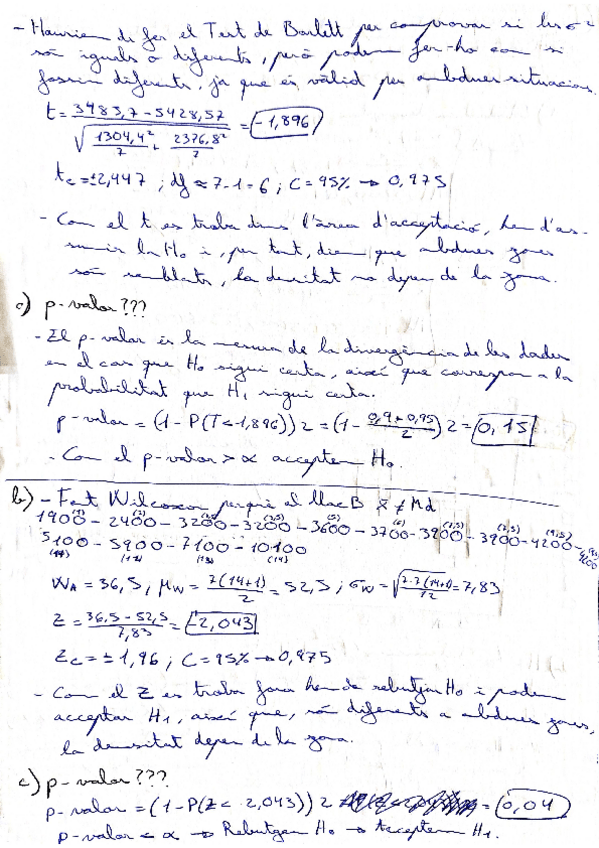 - Hauriem de fer el Test de Barlett per comprovar si les σ²
són iguals o diferents, però podem fer-ho com si
fossin diferents, ja que és vàlid per ambdues situacions.
t = 3483,7 - 5428,57 / √(1304,4²/7 + 2376,8²/7) = -1,896
tc = ±2,447 ; df ≈ 7-1 = 6 ; C = 95% → 0,975
- Com el t es troba dins l'àrea d'acceptació, hem d'as-
sumir la H0 i, per tant, diem que ambdues zones
són semblants, la densitat no depen de la zona.
c) p-valor???
- El p-valor és la mesura de la divergència de les dades
en el cas que H0 sigui certa, així que correspon a la
probabilitat que H1 sigui certa.
p-valor = (1 - P(T< -1,896)) 2 = (1 - 0,9+0,95/2) 2 = 0,15
- Com el p-valor > α acceptem H0.
b) - Fent Wilcoxon perquè al llac B x̄ ≠ Md
1900 - 2400 - 3200 - 3200 - 3600 - 3700 - 3900 - 3900 - 4200 - 4200
5100 - 5900 - 7100 - 10100
(11) (12) (13) (14)
WA = 36,5 ; μW = 7(14+1)/2 = 52,5 ; σW = √(7·7(14+1)/12) = 7,83
Z = 36,5 - 52,5 / 7,83 = -2,043
Zc = ± 1,96 ; C = 95% → 0,975
- Com el Z es troba fora hem de rebutjar H0 i podem
acceptar H1, així que, són diferents a ambdues zones,
la densitat depen de la zona.
c) p-valor???
p-valor = (1 - P(Z < 2,043)) 2 = 0,04
p-valor < α → Rebutgem H0 → Acceptem H1.